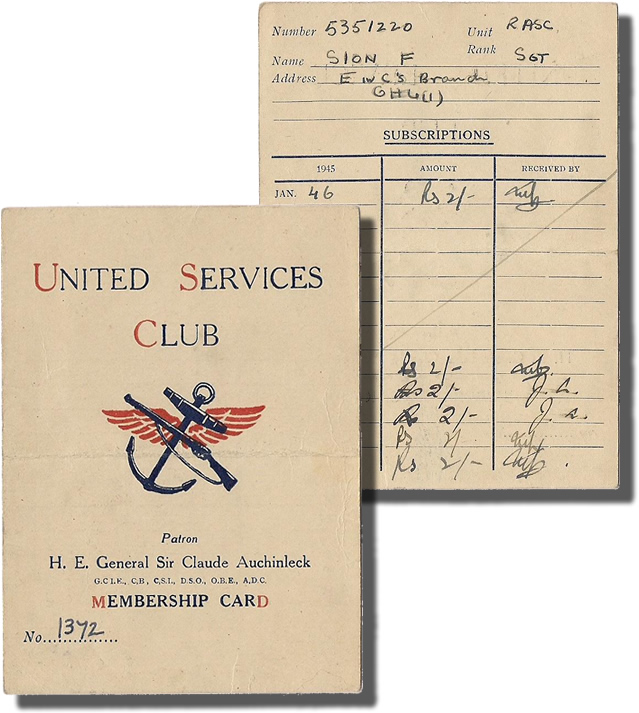 Number 5351220 Unit RASC
Name SION F Rank SGT
Address E in C's Branch
GHQ(1)
SUBSCRIPTIONS
1945 AMOUNT RECEIVED BY
JAN. 46 Rs 2/-
Rs 2/-
Rs 2/- J. S.
Rs 2/- J. S.
Rs 2/-
Rs 2/-
UNITED SERVICES
CLUB
Patron
H. E. General Sir Claude Auchinleck
G.C.I.E., C.B., C.S.I., D.S.O., O.B.E., A.D.C.
MEMBERSHIP CARD
No. 1372